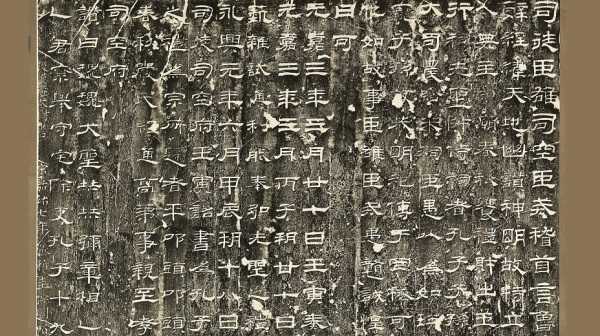 司徒臣雄司空臣戒稽首言魯
辭經緯天地幽讚神明故特立
人典主守廟春秋饗禮財出王
行祠先聖師侍祠者孔子子孫
大司農給米祠臣愚以為如瑛
寵子孫敬恭明祀傳于罔極可
他如故事臣雄臣戒愚戇誠惶
曰可
元嘉三年三月廿七日壬寅奏
元嘉三年三月丙子朔廿七日
選雜試通利能奉弘先聖之禮
永興元年六月甲辰朔十八日
司徒司空府壬寅詔書為孔子
之禮為宗所歸者平叩頭叩頭
春秋嚴氏經通高第事親至孝
司空府
讚曰巍巍大聖赫赫彌章相乙
人君察舉守宅除吏孔子十九